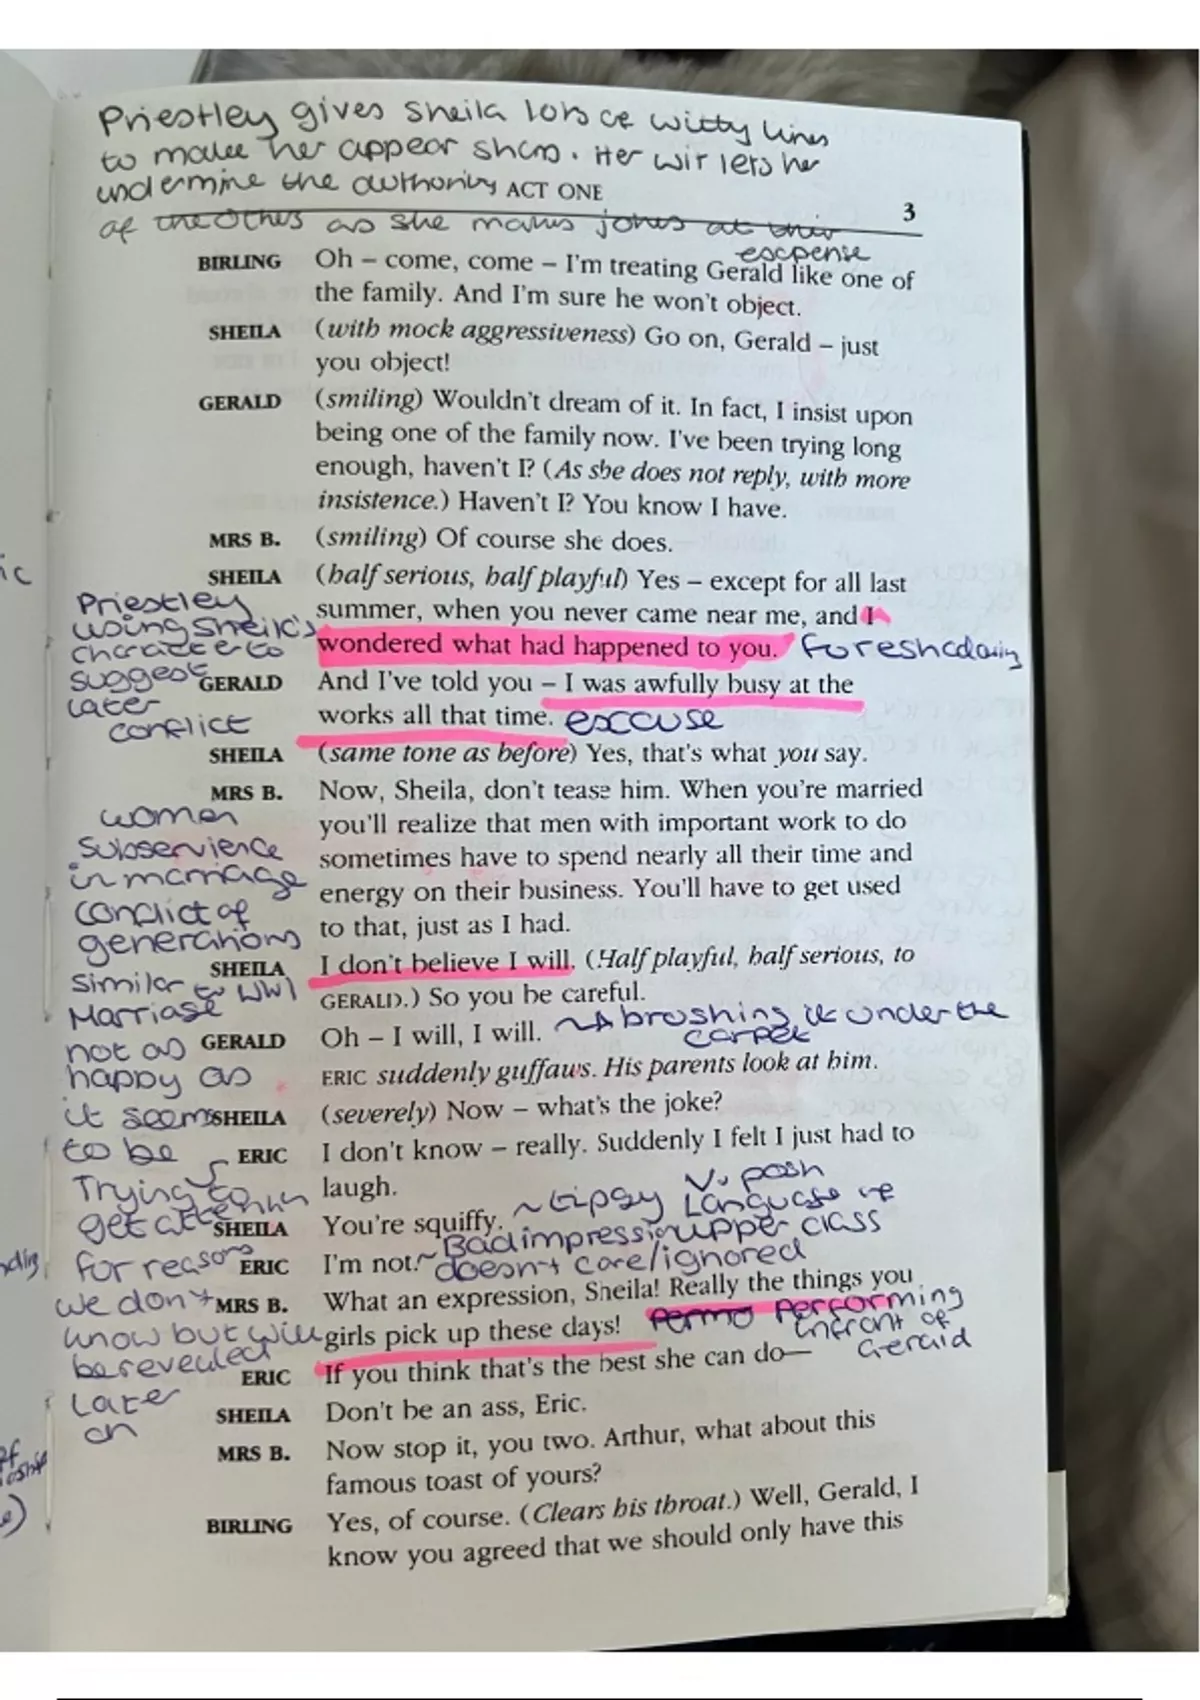 Priestley gives Sheila lots of witty lines
to make her appear sharp. Her wit lets her
undermine the authority ACT ONE
of the others as she makes jokes at their
expense
3
BIRLING Oh – come, come – I'm treating Gerald like one of
the family. And I'm sure he won't object.
SHEILA (with mock aggressiveness) Go on, Gerald – just
you object!
GERALD (smiling) Wouldn't dream of it. In fact, I insist upon
being one of the family now. I've been trying long
enough, haven't I? (As she does not reply, with more
insistence.) Haven't I? You know I have.
MRS B. (smiling) Of course she does.
SHEILA (half serious, half playful) Yes – except for all last
summer, when you never came near me, and I
wondered what had happened to you. foreshadowing
Priestley
using Sheila's
character to
suggest
later
conflict
GERALD And I've told you – I was awfully busy at the
works all that time. excuse
SHEILA (same tone as before) Yes, that's what you say.
MRS B. Now, Sheila, don't tease him. When you're married
you'll realize that men with important work to do
sometimes have to spend nearly all their time and
energy on their business. You'll have to get used
to that, just as I had.
women
subservience
in marriage
conflict of
generations
SHEILA I don't believe I will. (Half playful, half serious, to
GERALD.) So you be careful.
similar to WW1
Marriage
not as
happy as
it seems
to be
GERALD Oh – I will, I will. brushing it under the
carpet
ERIC suddenly guffaws. His parents look at him.
SHEILA (severely) Now – what's the joke?
ERIC I don't know – really. Suddenly I felt I just had to
laugh.
Trying to
get attention
for reasons
we don't
know but will
be revealed
later
on
SHEILA You're squiffy. ~tipsy V. posh
Language
upper class
ERIC I'm not. Bad impression
doesn't care/ignored
MRS B. What an expression, Sheila! Really the things you
girls pick up these days! Performing
infront of
Gerald
ERIC If you think that's the best she can do—
SHEILA Don't be an ass, Eric.
MRS B. Now stop it, you two. Arthur, what about this
famous toast of yours?
BIRLING Yes, of course. (Clears his throat.) Well, Gerald, I
know you agreed that we should only have this